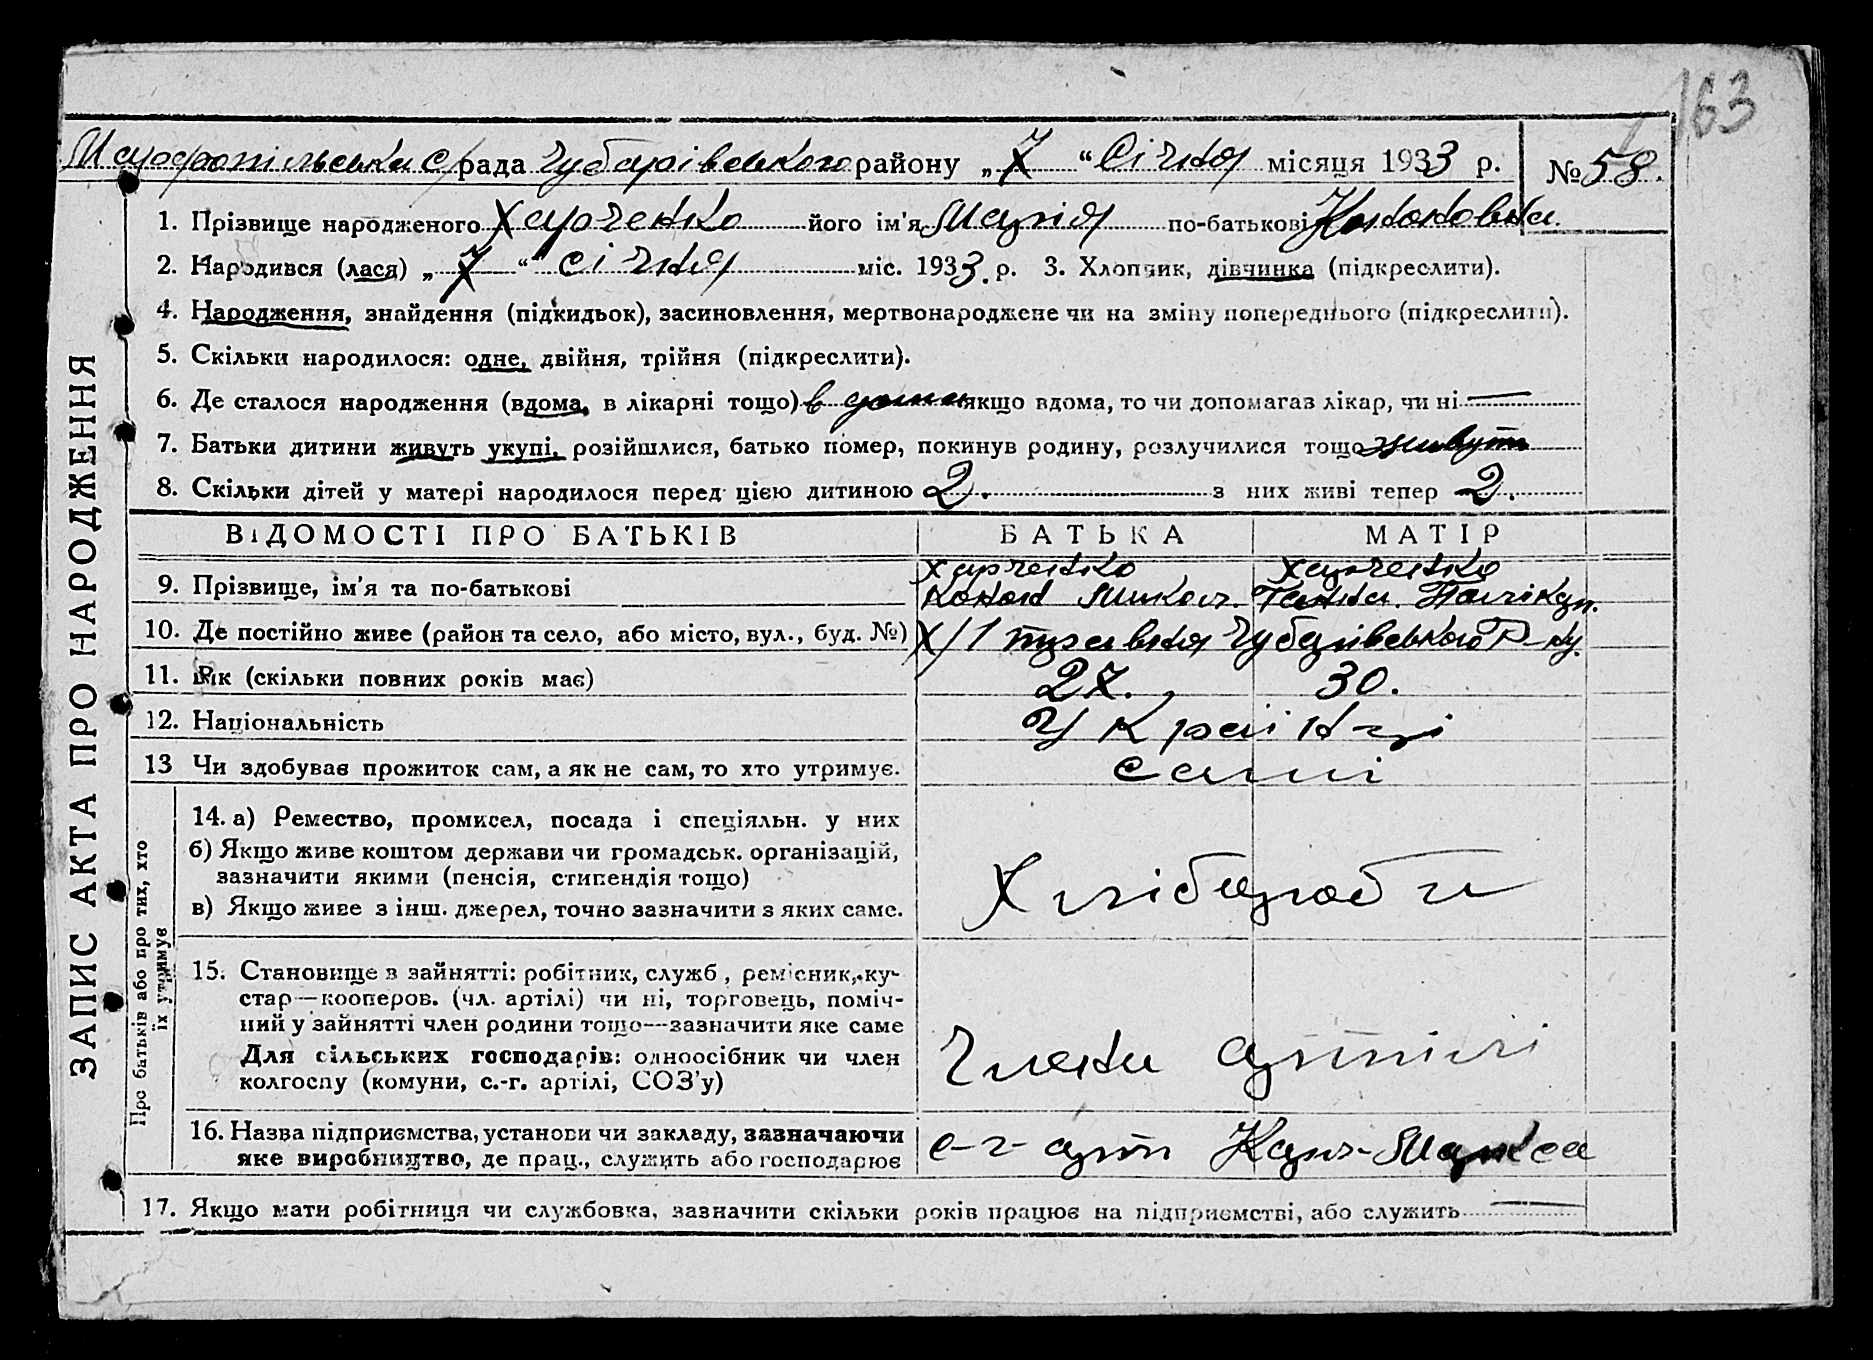 163
Марфопільська с/рада Чубарівського району „7“ Січня місяця 1933 р. №58.
1. Прізвище народженого Харченко його ім'я Марія по-батькові Кононовна.
2. Народився (лася) „7“ січня міс. 1933. р. 3. Хлопчик, дівчинка (підкреслити).
4. Народження, знайдення (підкидьок), засиновлення, мертвонароджене чи на зміну попереднього (підкреслити).
5. Скільки народилося: одне, двійня, трійня (підкреслити).
6. Де сталося народження (вдома, в лікарні тощо) в дома якщо вдома, то чи допомагав лікар, чи ні —
7. Батьки дитини живуть укупі, розійшлися, батько помер, покинув родину, розлучилися тощо живуть
8. Скільки дітей у матері народилося перед цією дитиною 2. з них живі тепер 2.
ВІДОМОСТІ ПРО БАТЬКІВ БАТЬКА МАТІР
Харченко Харченко
9. Прізвище, ім'я та по-батькові Конон Ганна
10. Де постійно живе (район та село, або місто, вул., буд. №) Х/Ттравня Чубарівського Р-ну.
11. Вік (скільки повних років має) 27. 30.
12. Національність Українці
13 Чи здобував прожиток сам, а як не сам, то хто утримує. самі
14. а) Ремество, промисел, посада і спеціяльн. у них
б) Якщо живе коштом держави чи громадськ. організацій,
зазначити якими (пенсія, стипендія тощо)
Хлібороби
в) Якщо живе з інш. джерел, точно зазначити з яких саме.
15. Становище в зайнятті: робітник, служб, ремісник, ку-
стар—кооперов. (чл. артілі) чи ні, торговець, поміч-
ний у зайнятті член родини тощо—зазначити яке саме
Для сільських господарів: одноосібник чи член
колгоспу (комуни, с.-г. артілі, СОЗ'у)
Члени артілі
16. Назва підприємства, установи чи закладу, зазначаючи
яке виробництво, де прац., служить або господарює
с-г- арт Карл-Маркса
17. Якщо мати робітниця чи службовка, зазначити скільки років працює на підприємстві, або служить —
ЗАПИС АКТА ПРО НАРОДЖЕННЯ
Про батьків або про тих, хто
їх утримує